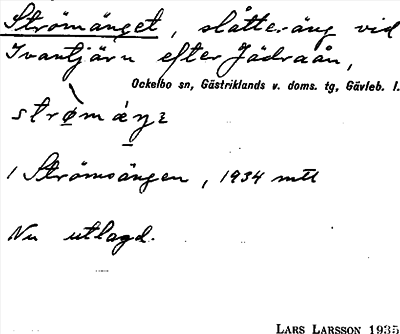 Strömänget, slåtteräng vid
Ivantjärn efter Jädraån,
Ockelbo sn, Gästriklands v. doms. tg, Gävleb. l.
1 Strömsängen, 1934 mtl
Nu utlagd.
LARS LARSSON 1935